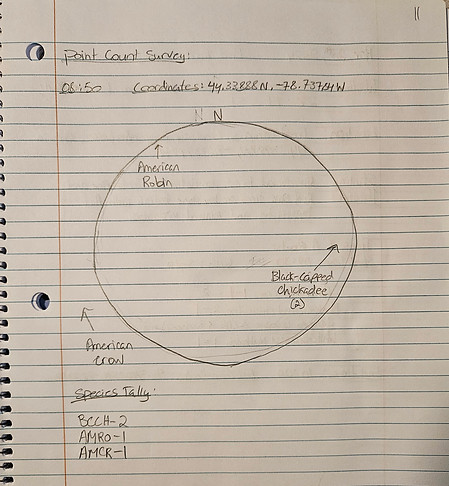 11
Point Count Survey:
08:50 Coordinates: 44.33888N, -78.73724W
N N
American
Robin
Black-capped
Chickadee
(2)
American
Crow
Species Tally:
BCCH-2
AMRO-1
AMCR-1